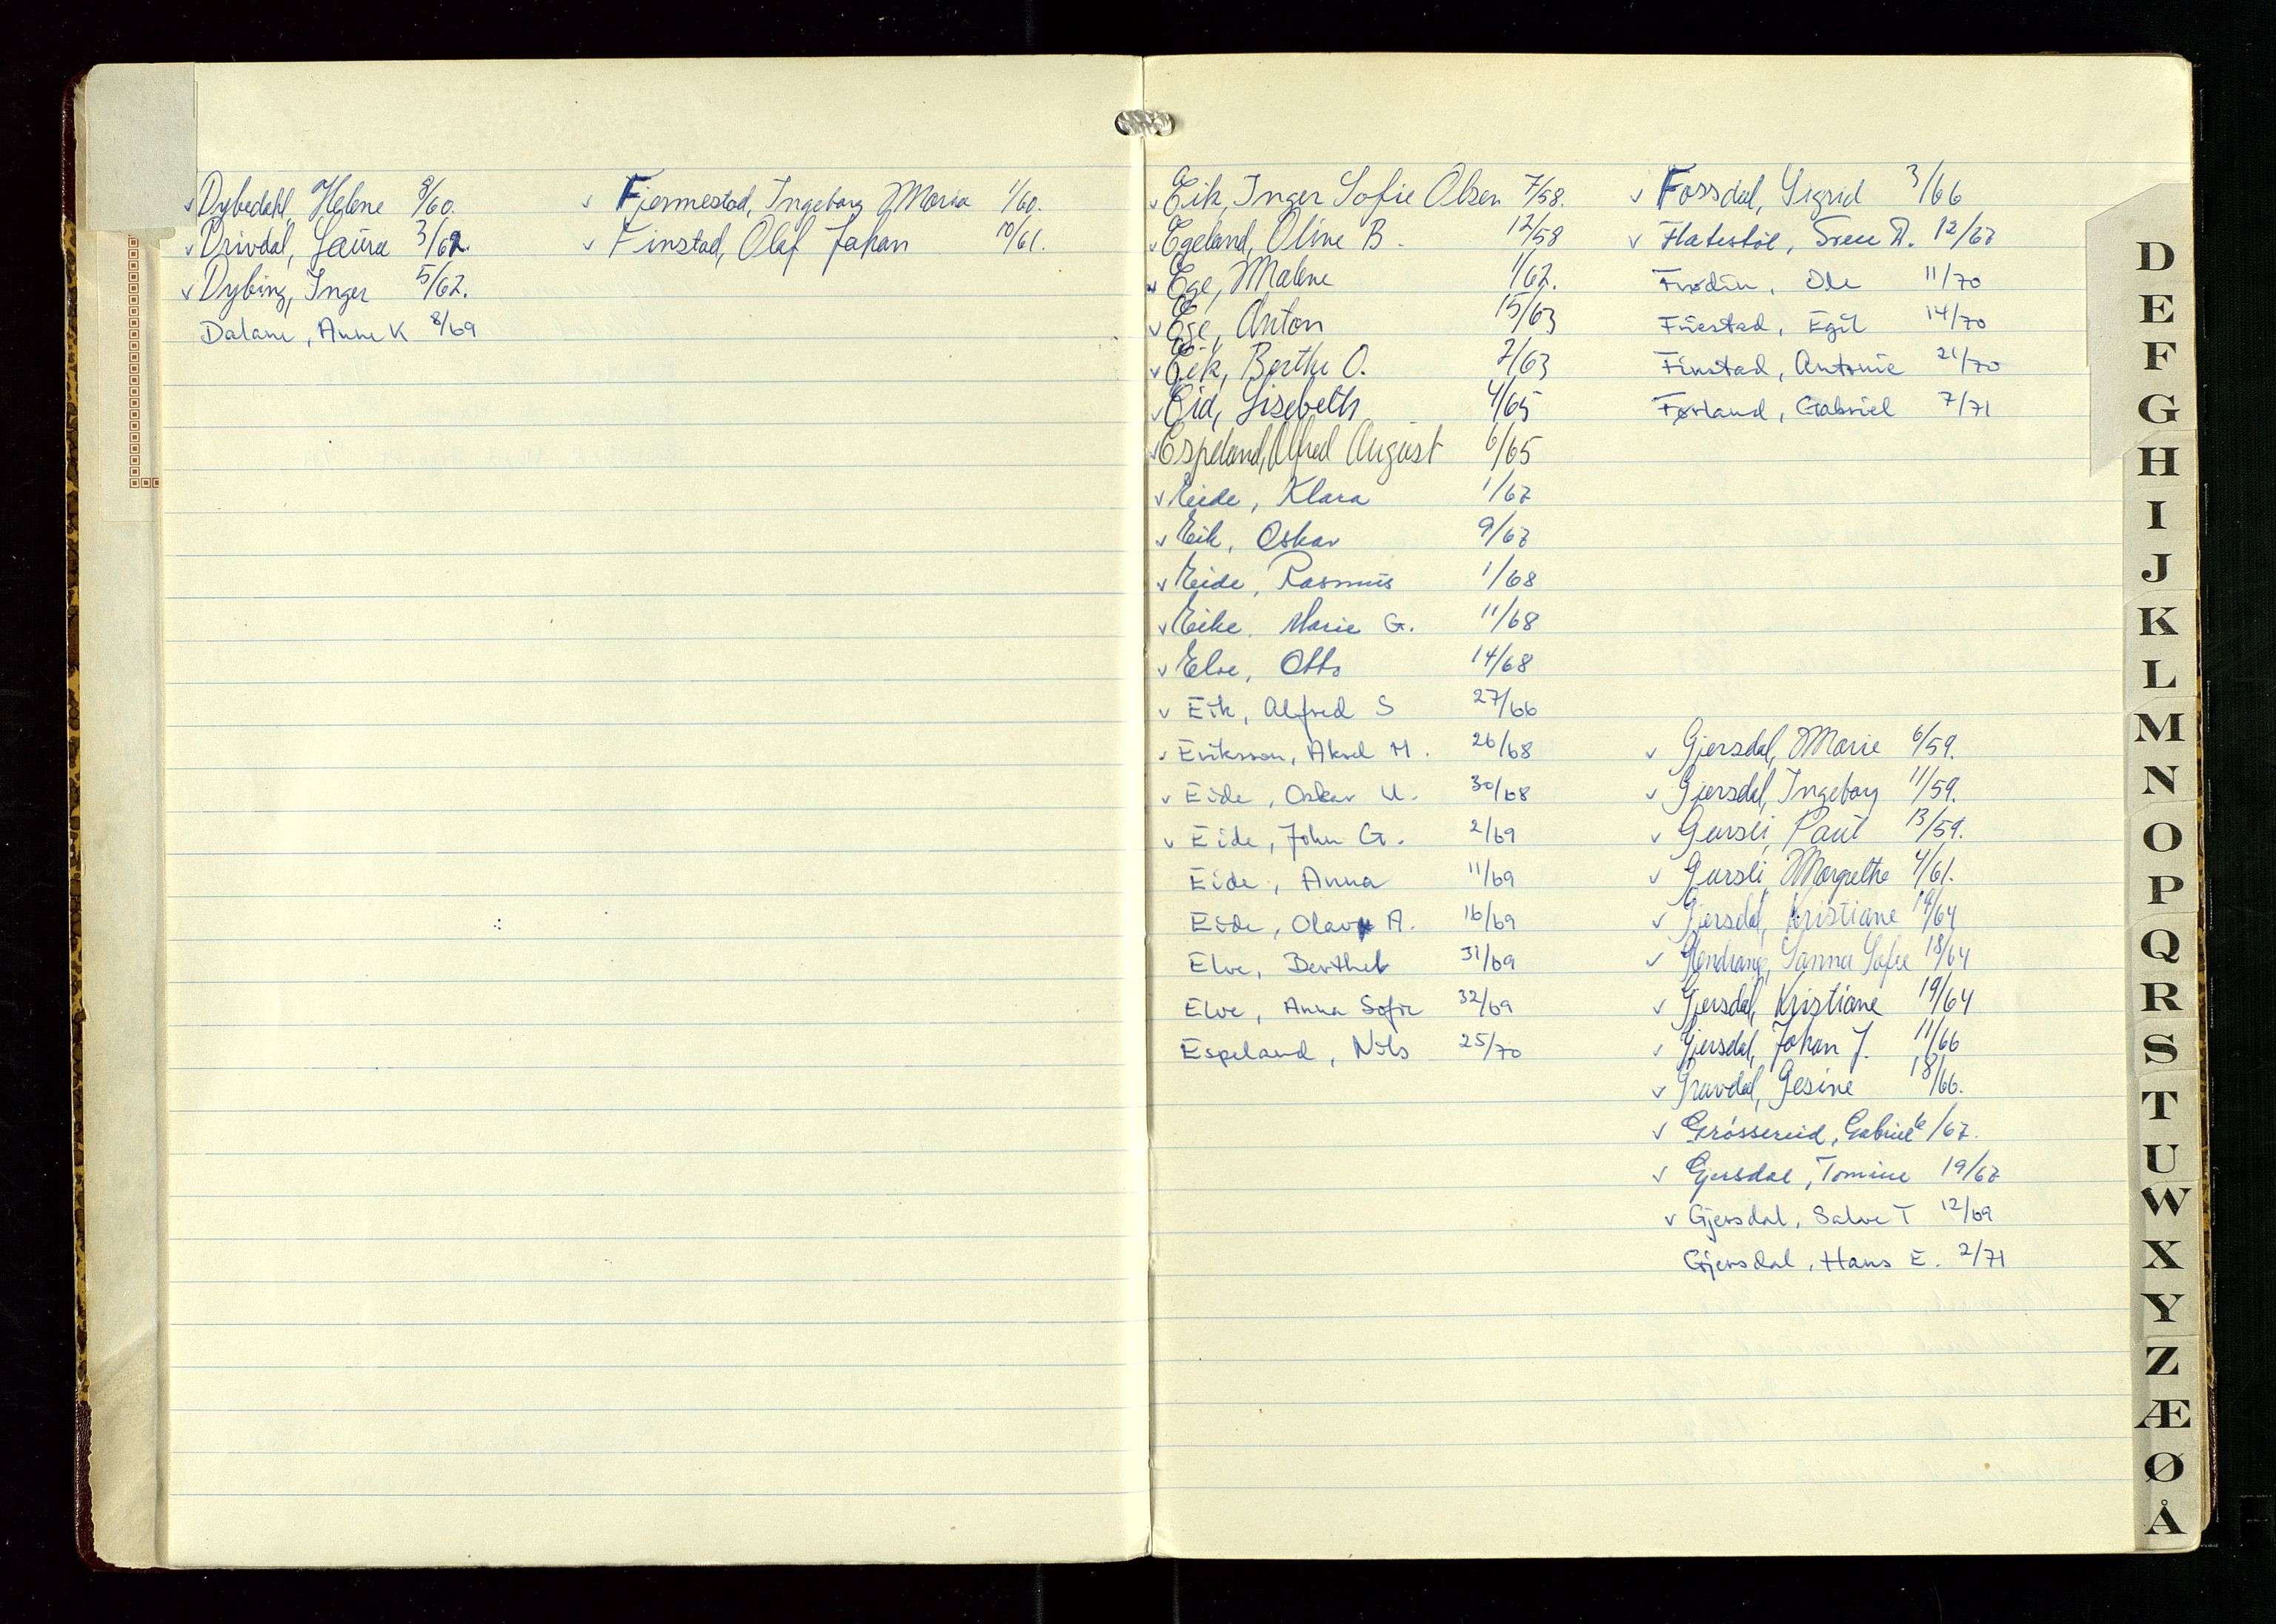 ✓ Dybedahl, Helene 8/60.
✓ Drivdal, Laura 3/62.
✓ Dybing, Inger 5/62.
Dalane, Anne K 8/69
✓ Fjermestad, Ingeborg Maria 1/60.
✓ Finstad, Olaf Johan 10/61.
✓ Eik, Inger Sofie Olsen 7/58.
✓ Egeland, Oline B. 12/58
✓ Ege, Malene 1/62.
✓ Ege, Anton 15/63
✓ Eik, Berthe O. 2/63
✓ Eid, Lisebeth 4/65
✓ Espeland, Alfred August 6/65
✓ Eide, Klara 1/67
✓ Eik, Oskar 9/67
✓ Eide, Rasmus 1/68
✓ Eike, Marie G. 11/68
✓ Elve, Otto 14/68
✓ Eik, Alfred S 27/66
✓ Eriksson, Aksel M. 26/68
✓ Eide, Oskar U. 30/68
✓ Eide, John G. 2/69
Eide, Anna 11/69
Eide, Olav A. 16/69
Elve, Berthel 31/69
Elve, Anna Sofie 32/69
Espeland, Nils 25/70
✓ Fossdal, Sigrid 3/66
✓ Flatestøl, 12/67
Frødin, Ole 11/70
Egil 14/70
Finstad, Antonie 21/70
Førland, Gabriel 7/71
✓ Gjersdal, Marie 6/59.
✓ Gjersdal, Ingeborg 11/59.
✓ Gursli, Paul 13/59.
✓ Gursli, Margrethe 4/61.
✓ Gjersdal, Kristiane 19/64
✓ Sanna Sofie 18/64
✓ Gjersdal, Kristiane 19/64
✓ Gjersdal, Johan J. 11/66
✓ Gravdal, Gesine 18/66.
✓ Grøssereid, Gabriel 6/67.
✓ Gjersdal, Tomine 19/67
✓ Gjersdal, Salve T 12/69
Gjersdal, Hans E. 2/71
D
E
F
G
H
I
J
K
L
M
N
O
P
Q
R
S
T
U
W
X
Y
Z
Æ
Ø
Å